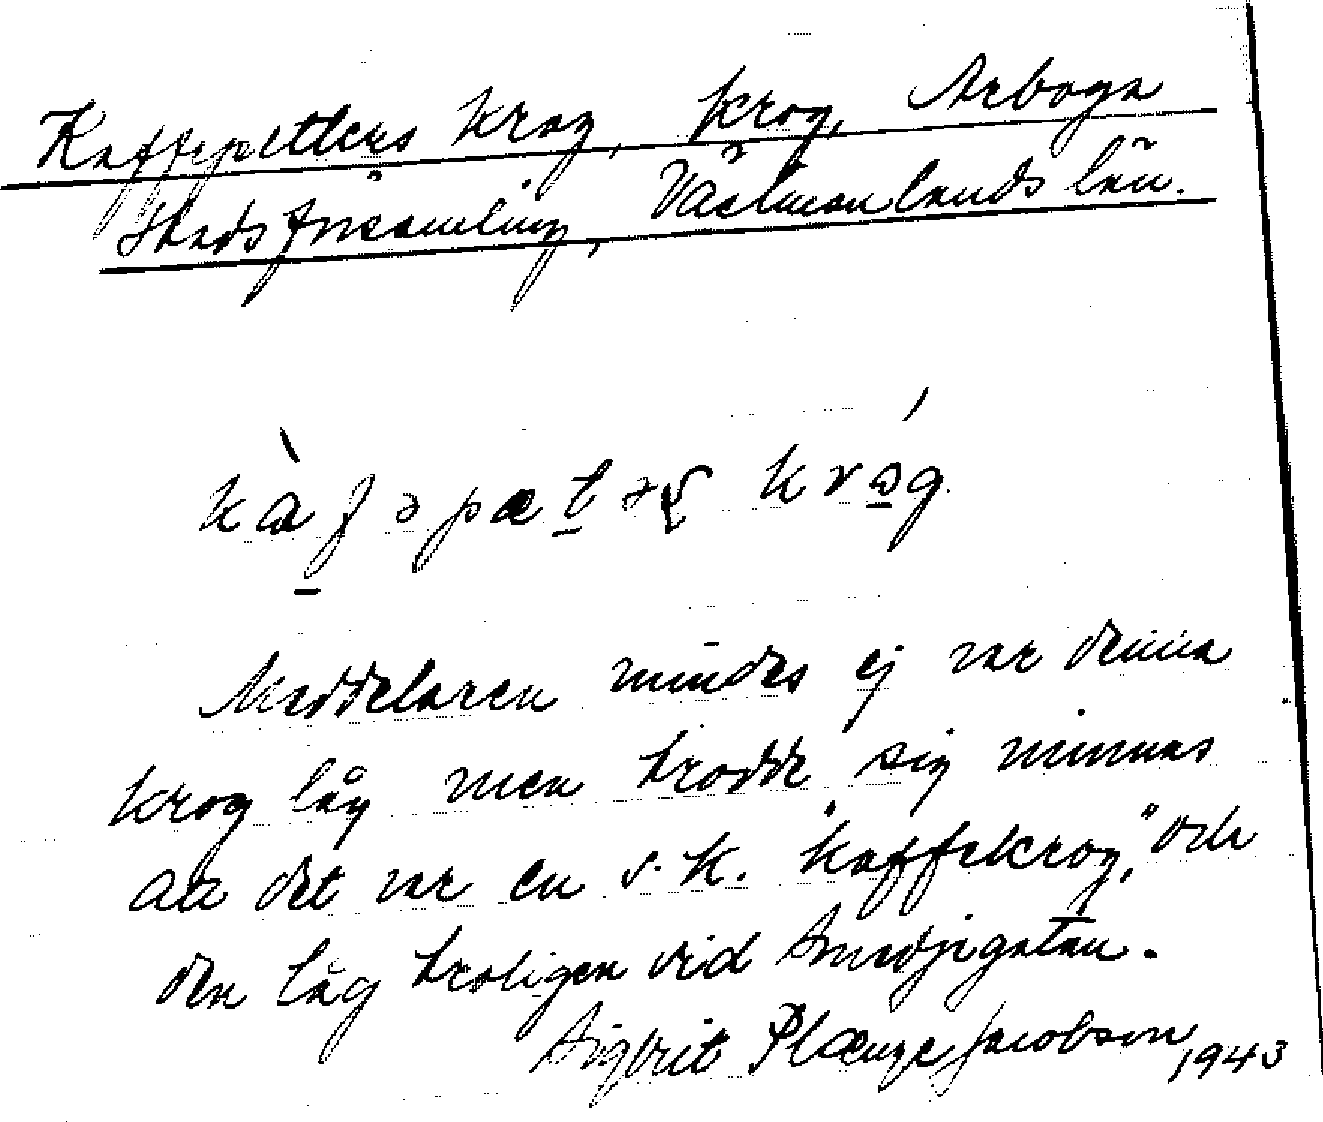 Kaffepetters krog, krog, Arboga
stadsförsamling, Västmanlands län.
kàfəpætəʂ krɔ́g.
Meddelaren mindes ej var denna
krog låg men trodde sig minnas
att det var en s.k. "kaffekrog", och
den låg troligen vid Smedjegatan.
Sigbrit Plænge Jacobson, 1943